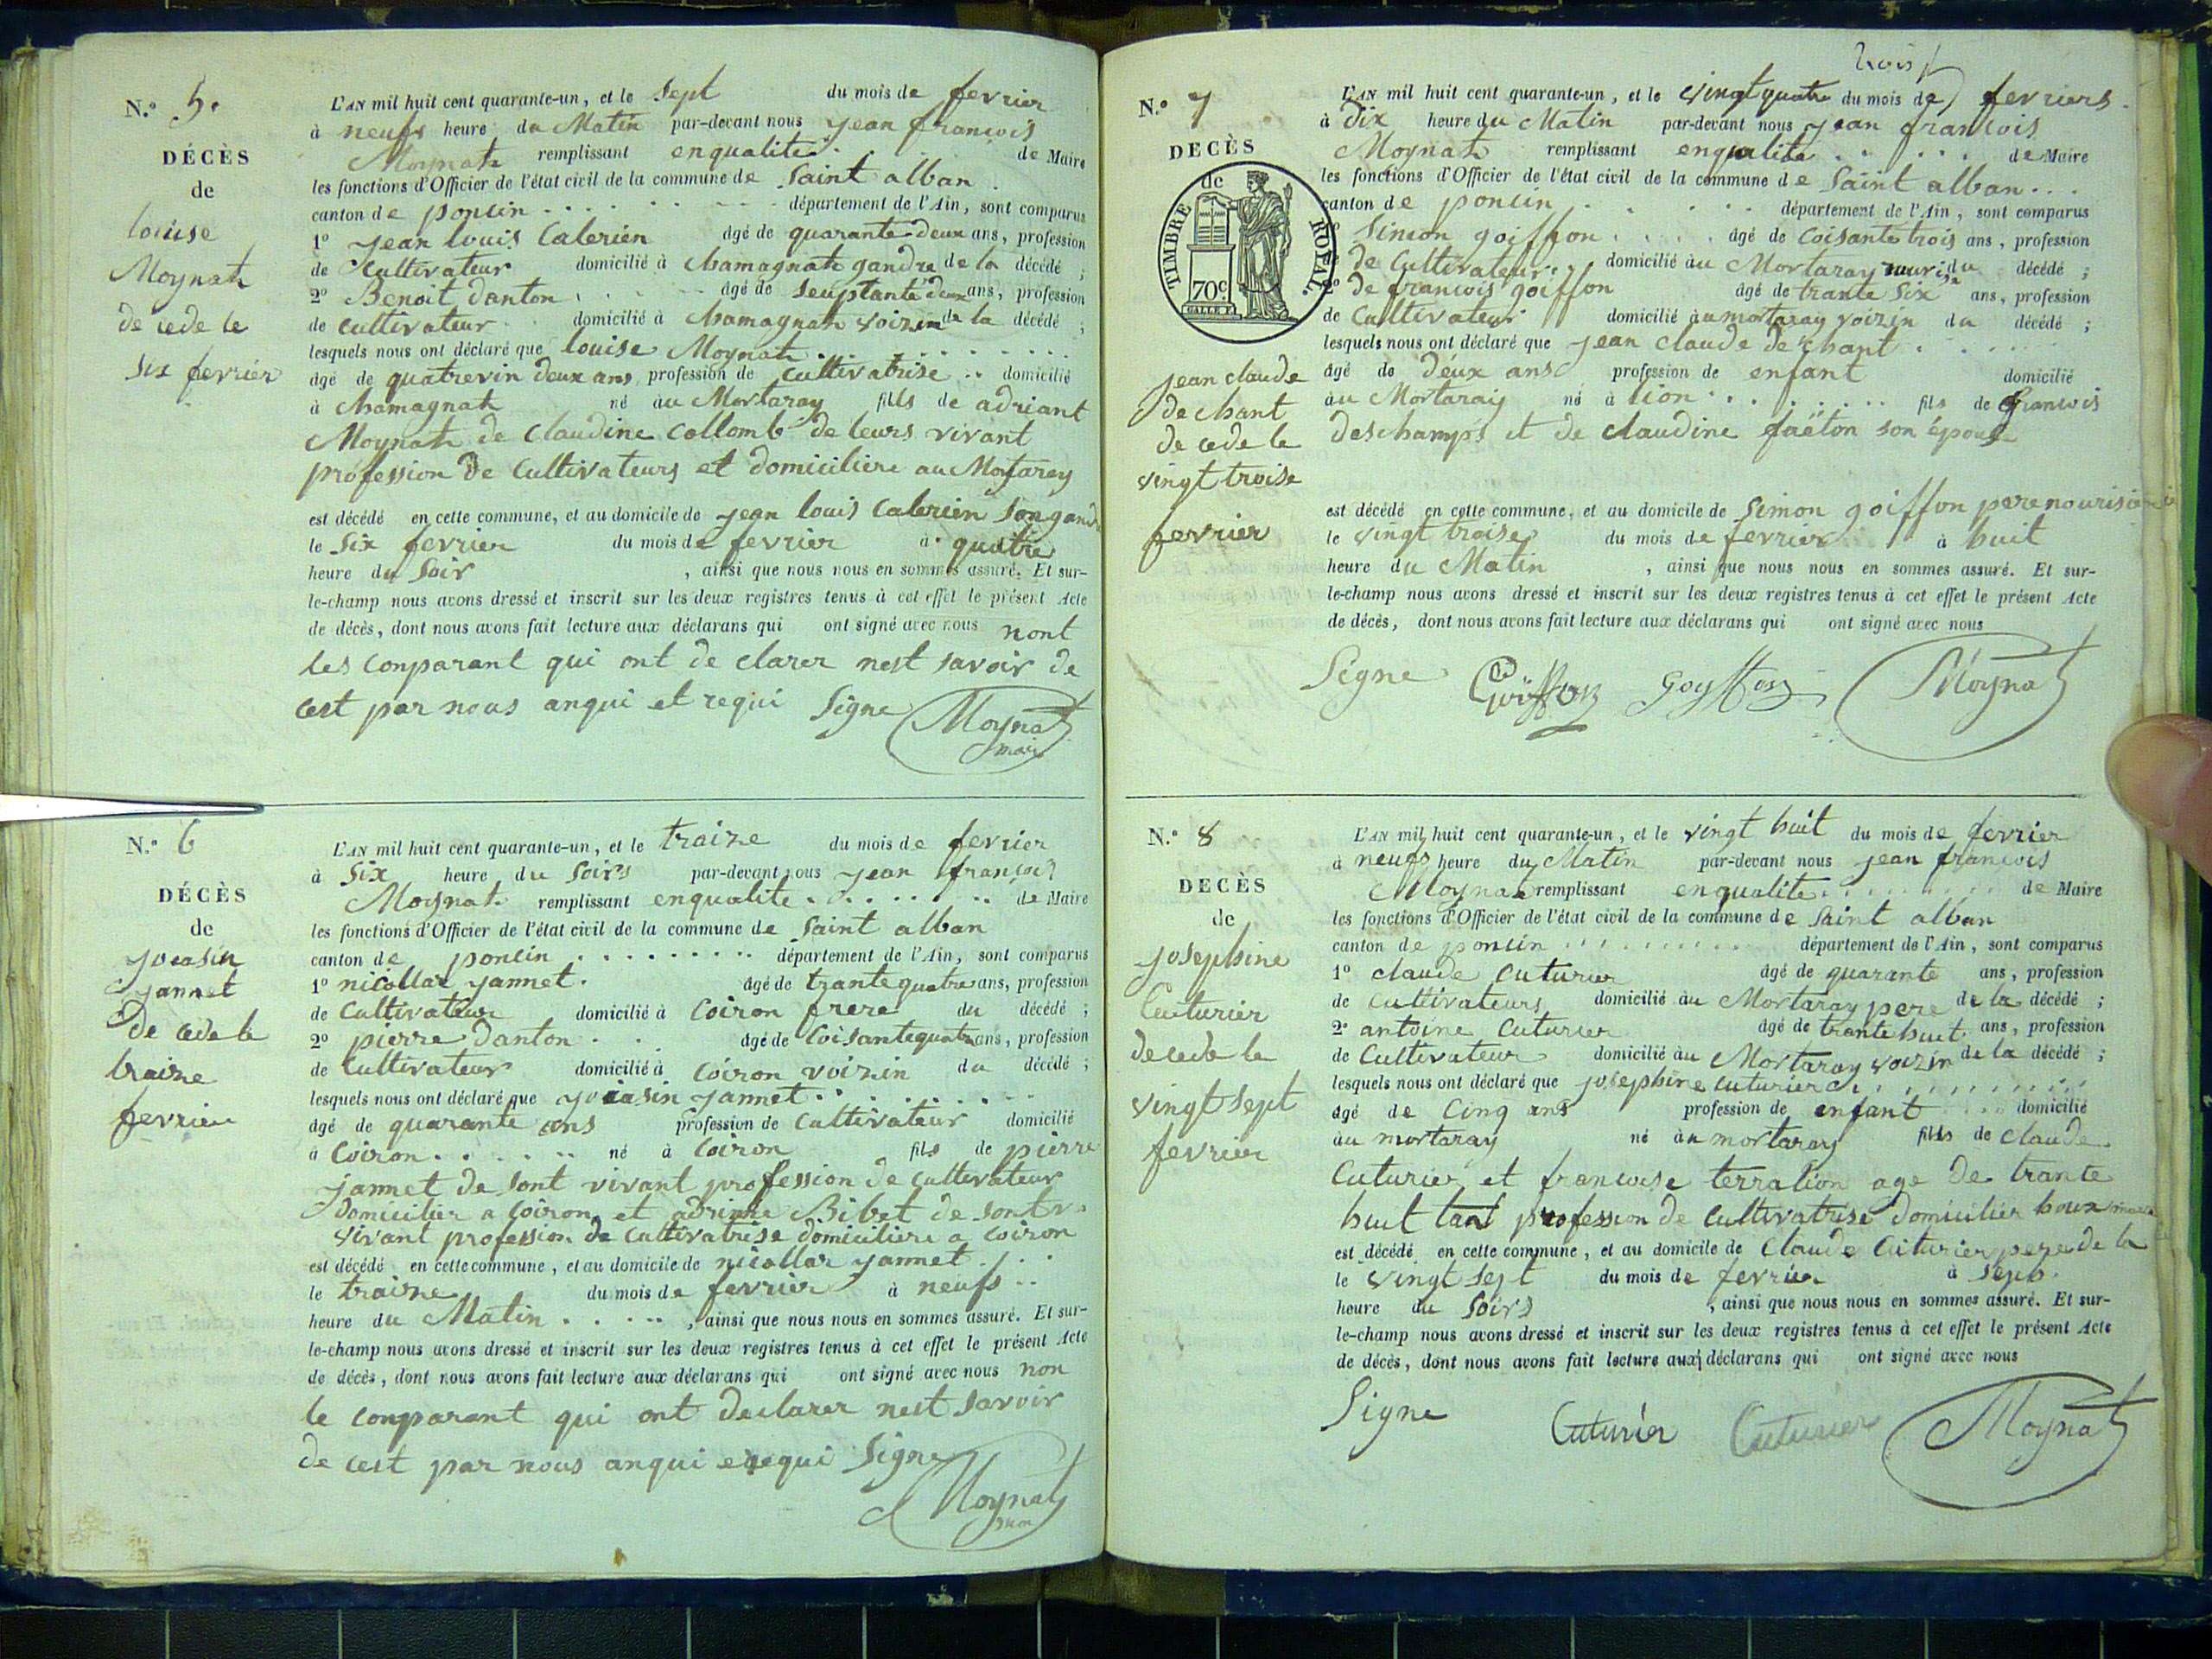 N.o 5.
DÉCÈS
de
louise
Moynat
de cede le
six fevrier
L'AN mil huit cent quarante-un, et le sept du mois de fevrier
à neufs heure du Matin par-devant nous jean francois
Moynat remplissant enqualite . . . de Maire
les fonctions d'Officier de l'état civil de la commune de Saint alban .
canton de poncin . . . . . . département de l'Ain, sont comparus
1o jean louis Calerien âgé de quarante deux ans, profession
de Cultivateur domicilié à chamagnat gandre de la décédé ;
2o Benoit danton . . . âgé de seuptante deux ans, profession
de cultivateur domicilié à chamagnat voizin de la décédé ;
lesquels nous ont déclaré que louise Moynat . . . . . . .
âgé de quatrevin deux ans profession de cultivatrise .. domicilié
à chamagnat né au Mortaray fills de adriant
Moynat de claudine collomb de leurs vivant
profession de Cultivateurs et domiciliere au Mortaray
est décédé en cette commune, et au domicile de jean louis Calerien son gandre
le Six fevrier du mois de fevrier à quatre
heure du Soir , ainsi que nous nous en sommes assuré. Et sur-
le-champ nous avons dressé et inscrit sur les deux registres tenus à cet effet le présent Acte
de décès, dont nous avons fait lecture aux déclarans qui ont signé avec nous nont
les conparant qui ont de clarer nest savoir de
cest par nous anqui et requi Signe Moynat
maire
N.o 6
DÉCÈS
de
yoiasin
yannet
De cede le
traize
fevrier
L'AN mil huit cent quarante-un, et le traize du mois de fevrier
à Six heure du Soirs par-devant nous jean francois
Moynat remplissant enqualite . . . . . . de Maire
les fonctions d'Officier de l'état civil de la commune de Saint alban
canton de poncin . . . . . . . . département de l'Ain, sont comparus
1o nicollas yannet . âgé de trante quatre ans, profession
de Cultivateur domicilié à Coiron frere du décédé ;
2o pierre danton . . . âgé de Coisante quatre ans, profession
de Cultivateur domicilié à Coiron voizin du décédé ;
lesquels nous ont déclaré que yoiasin yannet . . . . . . .
âgé de quarante ans profession de Cultivateur domicilié
à Coiron . . . . . né à Coiron fils de pierre
yannet de sont vivant profession de cultivateur
domicilier a coiron et adrienne Bibet de sont
vivant profession de Cultivatrise domiciliere a coiron
est décédé en cette commune, et au domicile de nicollas yannet . . .
le traize du mois de fevrier à neufs ..
heure du Matin . . . . . , ainsi que nous nous en sommes assuré. Et sur-
le-champ nous avons dressé et inscrit sur les deux registres tenus à cet effet le présent Acte
de décès, dont nous avons fait lecture aux déclarans qui ont signé avec nous non
le conparant qui ont declarer nest savoir
de cest par nous anqui erequi Signe
Moynat
N.o 7
DECÈS
de
TIMBRE ROYAL.
70c
jean claude
de chant
de cede le
vingt troise
fevrier
trois
L'AN mil huit cent quarante-un, et le vingt quatre du mois de fevriers.
à Dix heure du Matin par-devant nous jean francois
Moynat remplissant enqualite . . . . de Maire
les fonctions d'Officier de l'état civil de la commune de Saint alban . . .
canton de poncin . . . . . département de l'Ain, sont comparus
Simon goiffon . . . . âgé de Coisante trois ans, profession
de Cultivateur domicilié au Mortaray du décédé ;
2o de francois goiffon âgé de trante Six ans, profession
de Cultivateur domicilié au mortaray voizin du décédé ;
lesquels nous ont déclaré que jean claude de chant . . . .
âgé de deux ans profession de enfant domicilié
au Mortaray né à lion . . . . . . . fils de francois
deschamps et de claudine faëton son épouse
est décédé en cette commune, et au domicile de Simon goiffon pere
le vingt troise du mois de fevrier à huit
heure du Matin , ainsi que nous nous en sommes assuré. Et sur-
le-champ nous avons dressé et inscrit sur les deux registres tenus à cet effet le présent Acte
de décès, dont nous avons fait lecture aux déclarans qui ont signé avec nous
Signe Goiffon Goyffon Moynat
N.o 8
DECÈS
de
josephine
Cuturier
de cede le
vingt sept
fevrier
L'AN mil huit cent quarante-un, et le vingt huit du mois de fevrier
à neufs heure du Matin par-devant nous jean francois
Moynat remplissant enqualite . . . . . de Maire
les fonctions d'Officier de l'état civil de la commune de Saint alban
canton de poncin . . . . . . . . département de l'Ain, sont comparus
1o claude Cuturier âgé de quarante ans, profession
de Cultivateurs domicilié au Mortaray pere de la décédé ;
2o antoine Cuturier âgé de trante huit ans, profession
de Cultivateur domicilié au Mortaray voizin de la décédé ;
lesquels nous ont déclaré que josephine cuturier . . . . . . .
âgé de Cinq ans profession de enfant . . . domicilié
au mortaray né au mortaray fills de claude
Cuturier et francoise terralion age de trante
huit tant profession de Cultivatrise domicilier
est décédé en cette commune, et au domicile de Claude Cuturier pere de la
le vingt Sept du mois de fevrier à Sept
heure du Soirs , ainsi que nous nous en sommes assuré. Et sur-
le-champ nous avons dressé et inscrit sur les deux registres tenus à cet effet le présent Acte
de décès, dont nous avons fait lecture aux déclarans qui ont signé avec nous
Signe Cuturier Cuturier Moynat